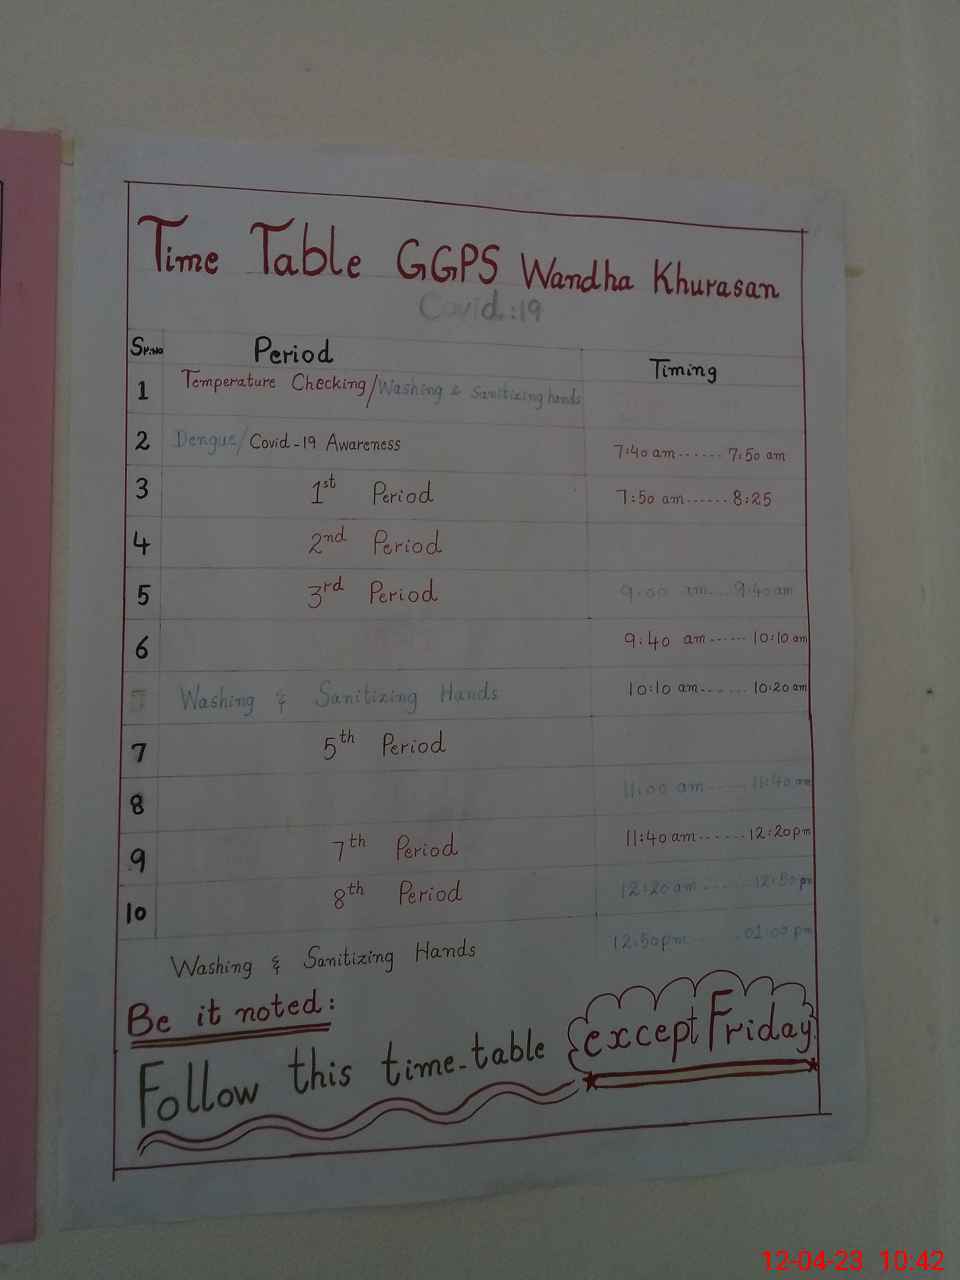 Time Table GGPS Wandha Khurasan
Covid:19
Sr.No Period Timing
1 Temperature Checking/Washing & Sanitizing hands
2 Dengue/Covid-19 Awareness 7:40 am------7:50 am
3 1st Period 7:50 am------8:25
4 2nd Period
5 3rd Period 9:00 am....9:40 am
6 9:40 am------10:10 am
Washing & Sanitizing Hands 10:10 am------10:20 am
7 5th Period
8 11:00 am------11:40 am
9 7th Period 11:40 am------12:20 pm
10 8th Period 12:20 am------12:50 pm
Washing & Sanitizing Hands 12:50pm......01:00 pm
Be it noted:
Follow this time-table except Friday.
12-04-23 10:42